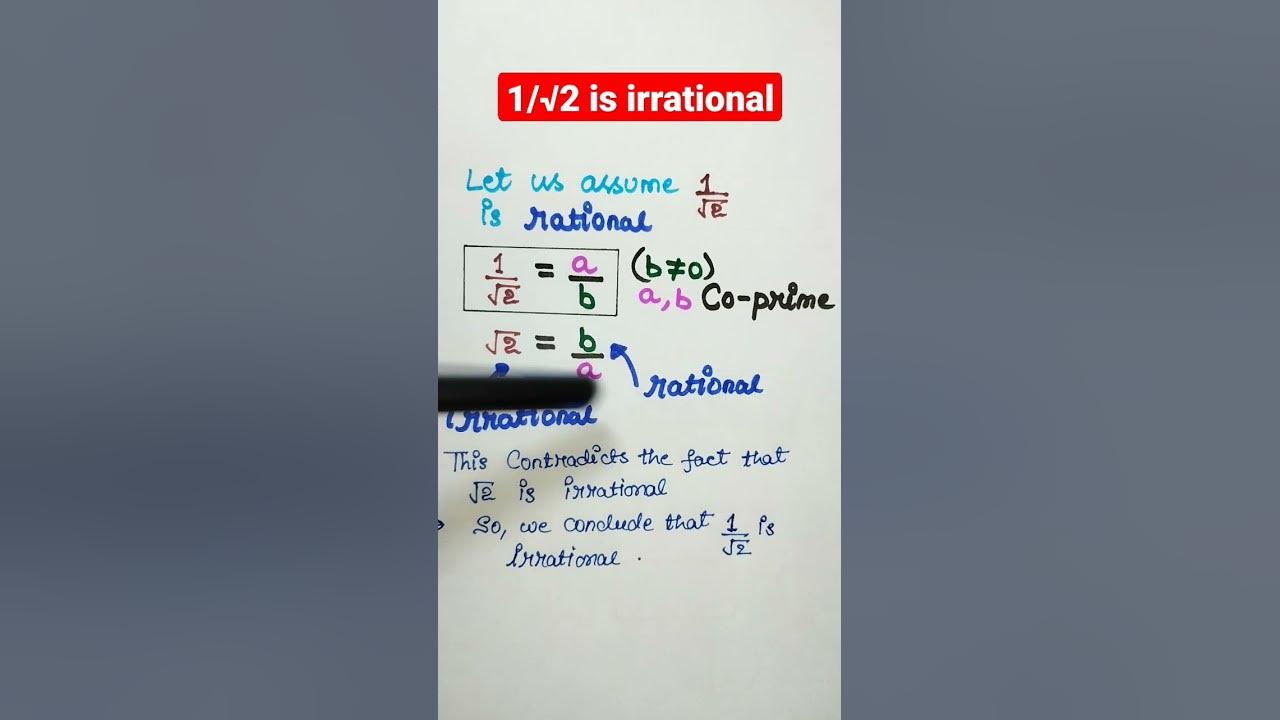 1/√2 is irrational
Let us assume 1/√2
is rational
1/√2 = a/b (b≠0)
a, b Co-prime
√2 = b/a
rational
Irrational
This Contradicts the fact that
√2 is irrational
So, we conclude that 1/√2 is
Irrational.